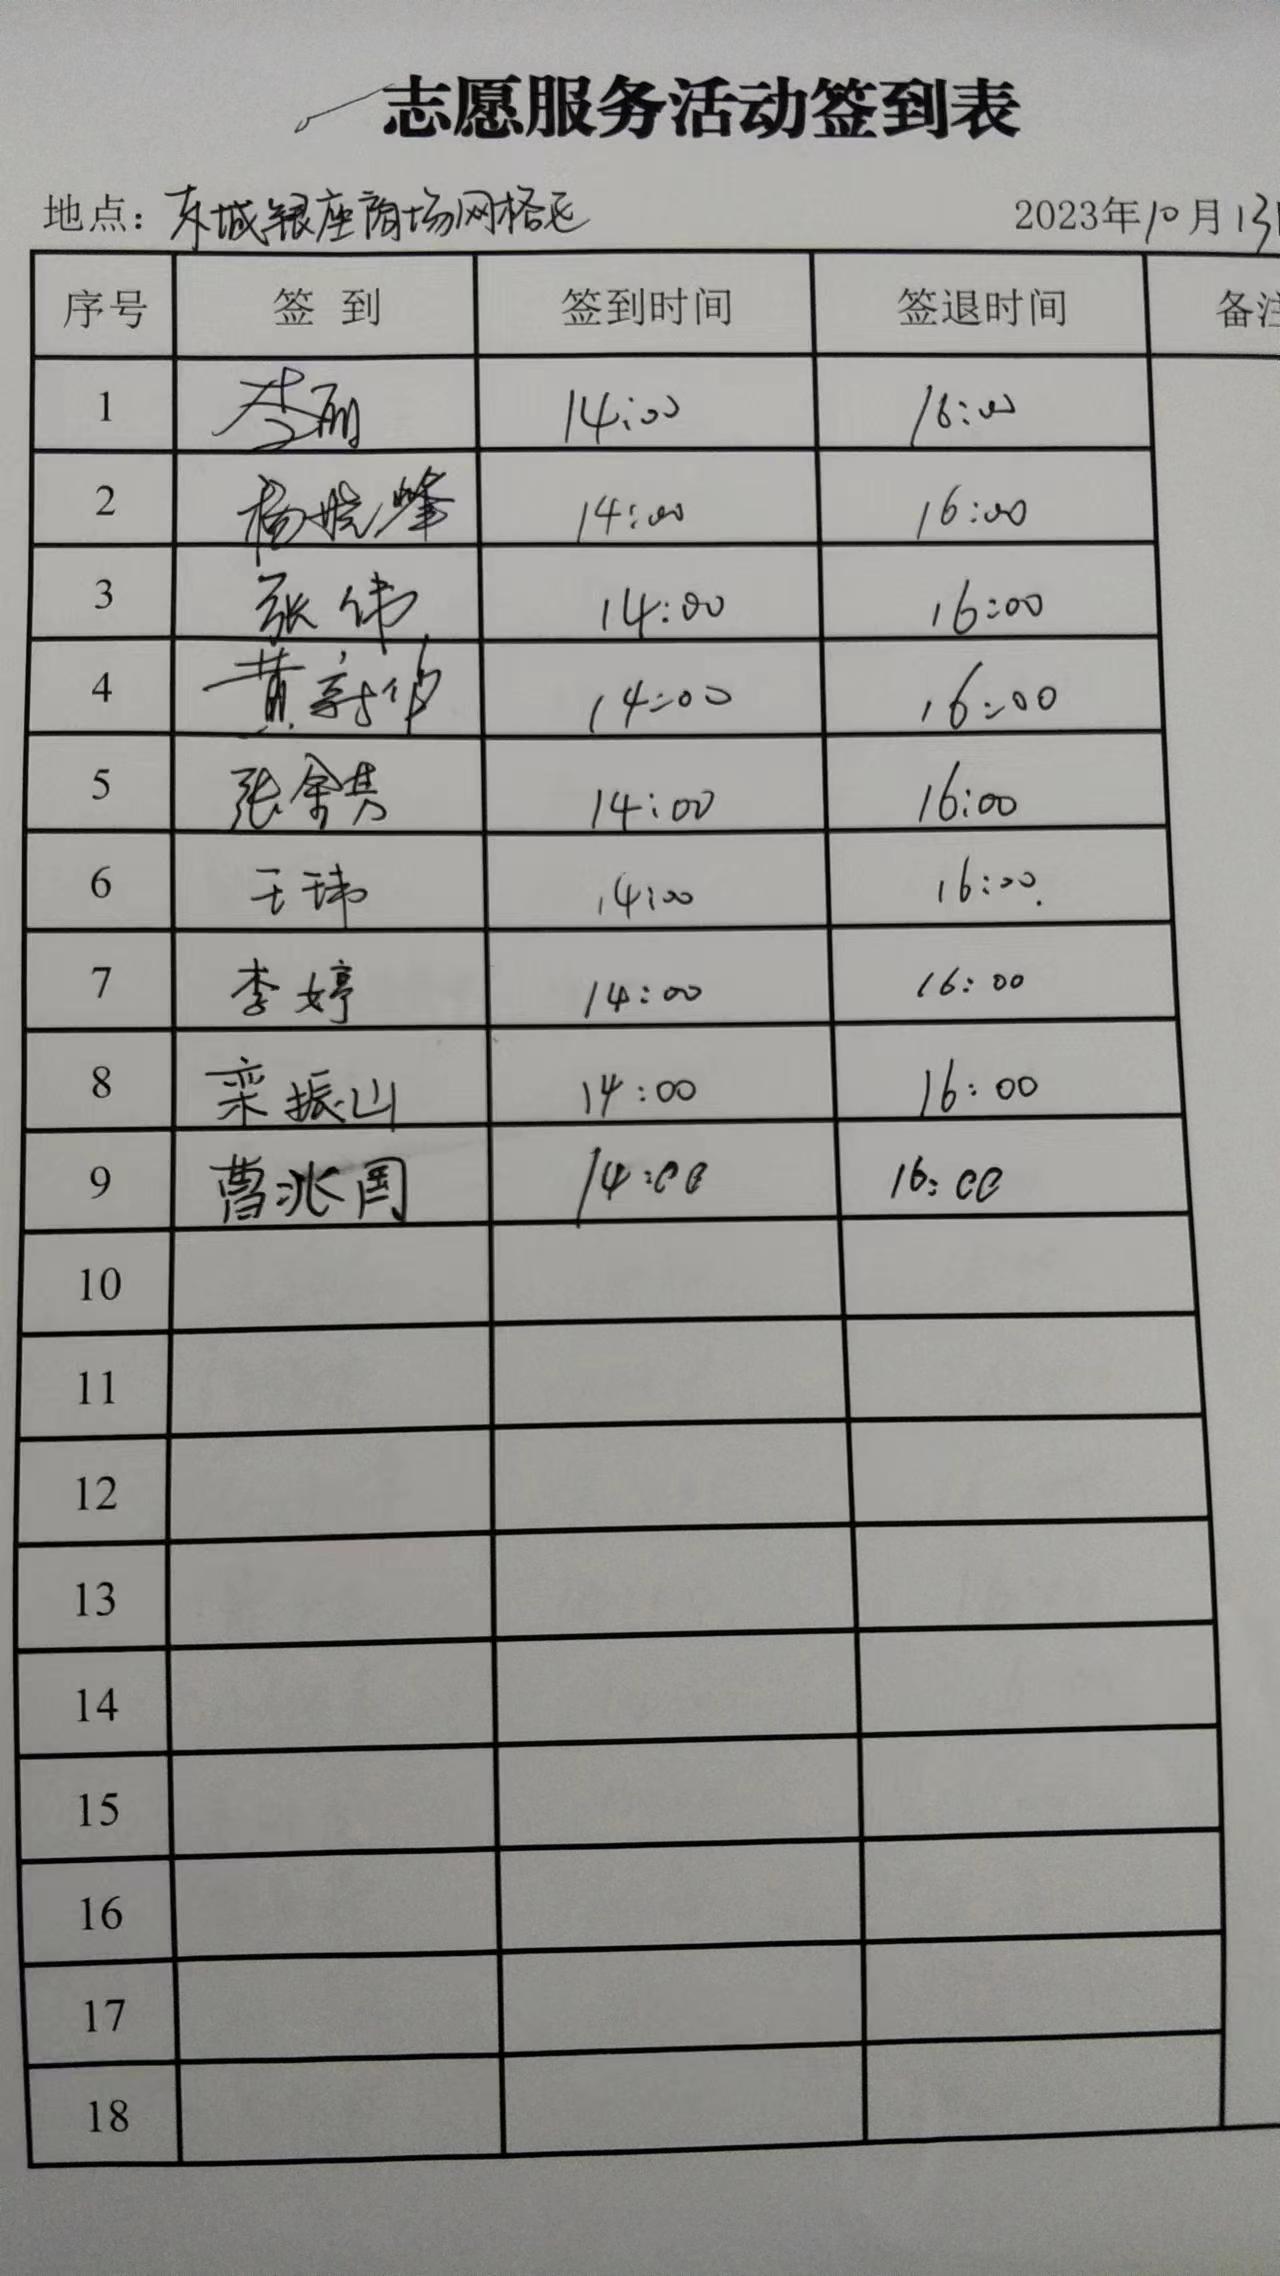 志愿服务活动签到表
地点：东城银座商场网格毛 2023年10月13日
序号 签到 签到时间 签退时间 备注
1 李丽 14:00 16:00
2 杨晓峰 14:00 16:00
3 张伟 14:00 16:00
4 黄新伯 14:00 16:00
5 14:00 16:00
6 王玮 14:00 16:00.
7 李婷 14:00 16:00
8 栾振山 14:00 16:00
9 曹兆国 14:00 16:00
10
11
12
13
14
15
16
17
18